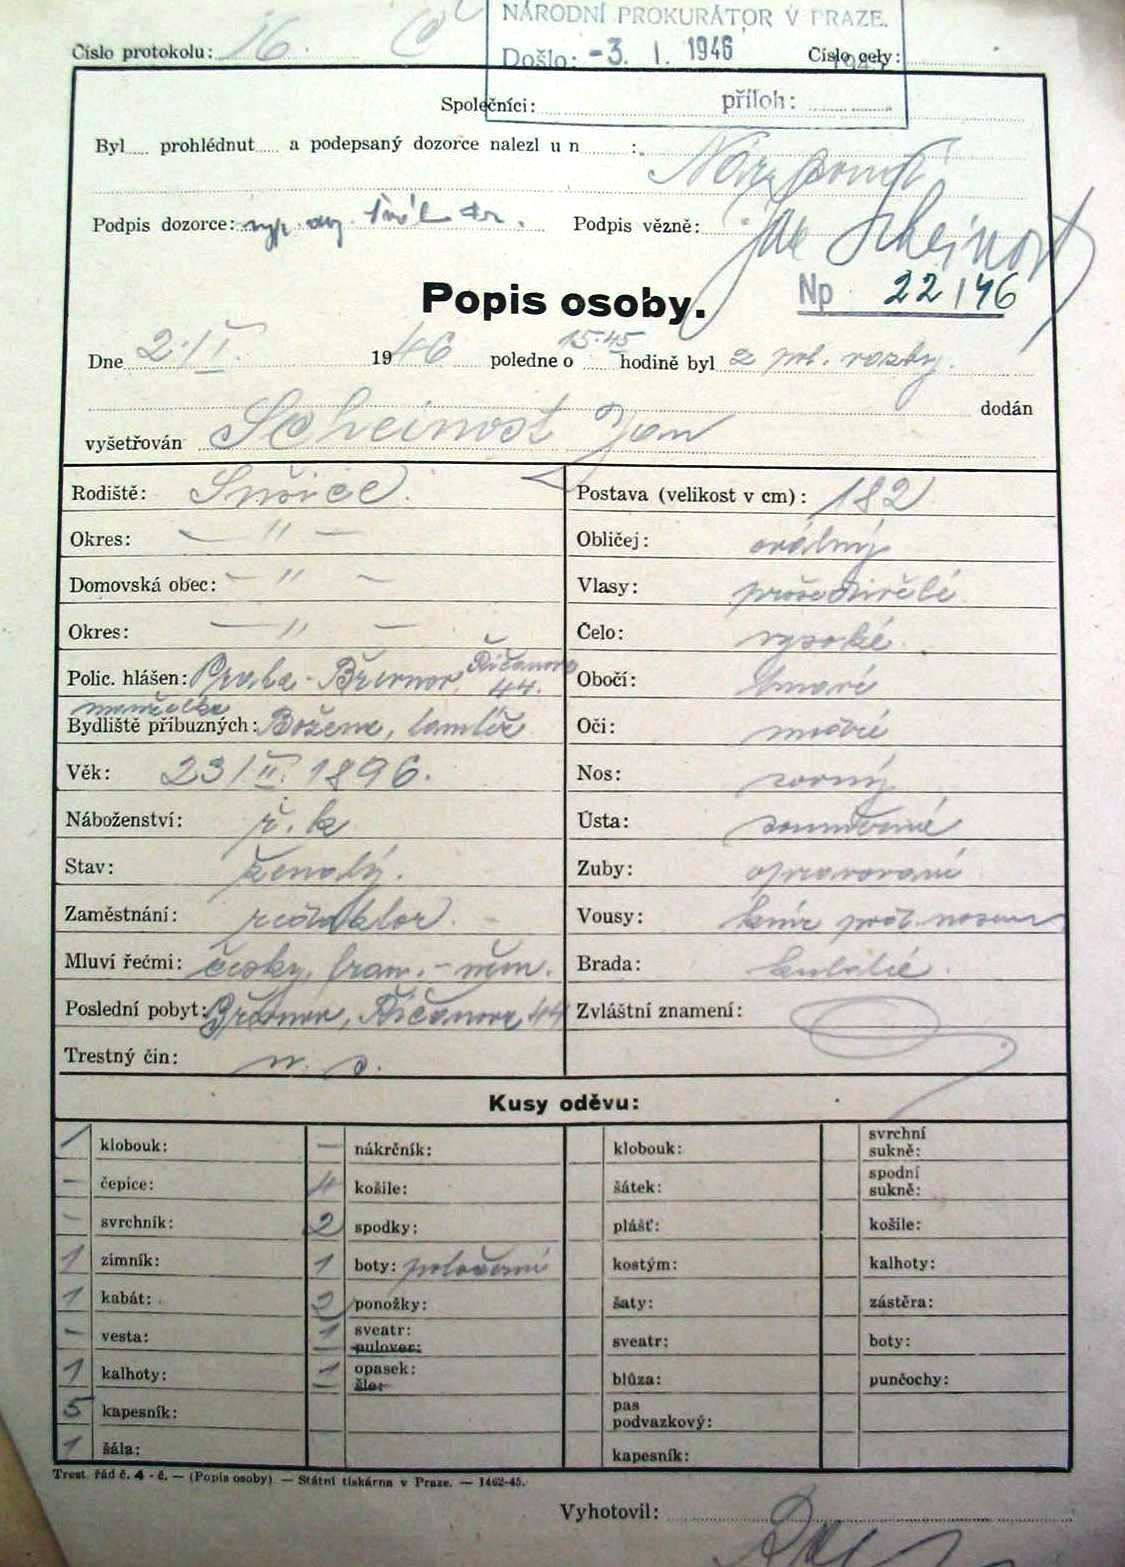 NÁRODNÍ PROKURÁTOR V PRAZE.
Číslo protokolu: 16.
Došlo: -3. I. 1946
Číslo cely:
Společníci:
příloh:
Byl prohlédnut a podepsaný dozorce nalezl u n :
Podpis dozorce:
Podpis vězně: Jan Scheinost
Popis osoby.
Np 22/46
Dne 2. I. 1946 poledne o 15.45 hodině byl z vaz. vazby.
dodán
vyšetřován Scheinost Jan
Rodiště:
Postava (velikost v cm): 182
Okres: — " —
Obličej: oválný
Domovská obec: — " —
Vlasy: prošedivělé
Okres: — " —
Čelo: vysoké
Polic. hlášen: Praha - Břevnov, Říčanova 44.
Obočí: tmavé
manželka
Bydliště příbuzných: Božena, tamtéž
Oči: modré
Věk: 23/II. 1896.
Nos: rovný
Náboženství: ř. k.
Ústa: souměrná
Stav: ženatý.
Zuby: opravované
Zaměstnání: redaktor.
Vousy: knír pod nosem
Mluví řečmi: česky, fran. - něm.
Brada: kulatá
Poslední pobyt: Břevnov, Říčanova 44
Zvláštní znamení:
Trestný čin:
Kusy oděvu:
1 klobouk:
— nákrčník:
klobouk:
svrchní sukně:
— čepice:
4 košile:
šátek:
spodní sukně:
— svrchník:
2 spodky:
plášť:
košile:
1 zimník:
1 boty:
kostým:
kalhoty:
1 kabát:
2 ponožky:
šaty:
zástěra:
— vesta:
1 sveatr:
— pulover:
sveatr:
boty:
1 kalhoty:
1 opasek:
— šle:
blůza:
punčochy:
5 kapesník:
pas podvazkový:
1 šála:
kapesník:
Trest. řád č. 4 - č. — (Popis osoby) — Státní tiskárna v Praze. — 1462-45.
Vyhotovil: